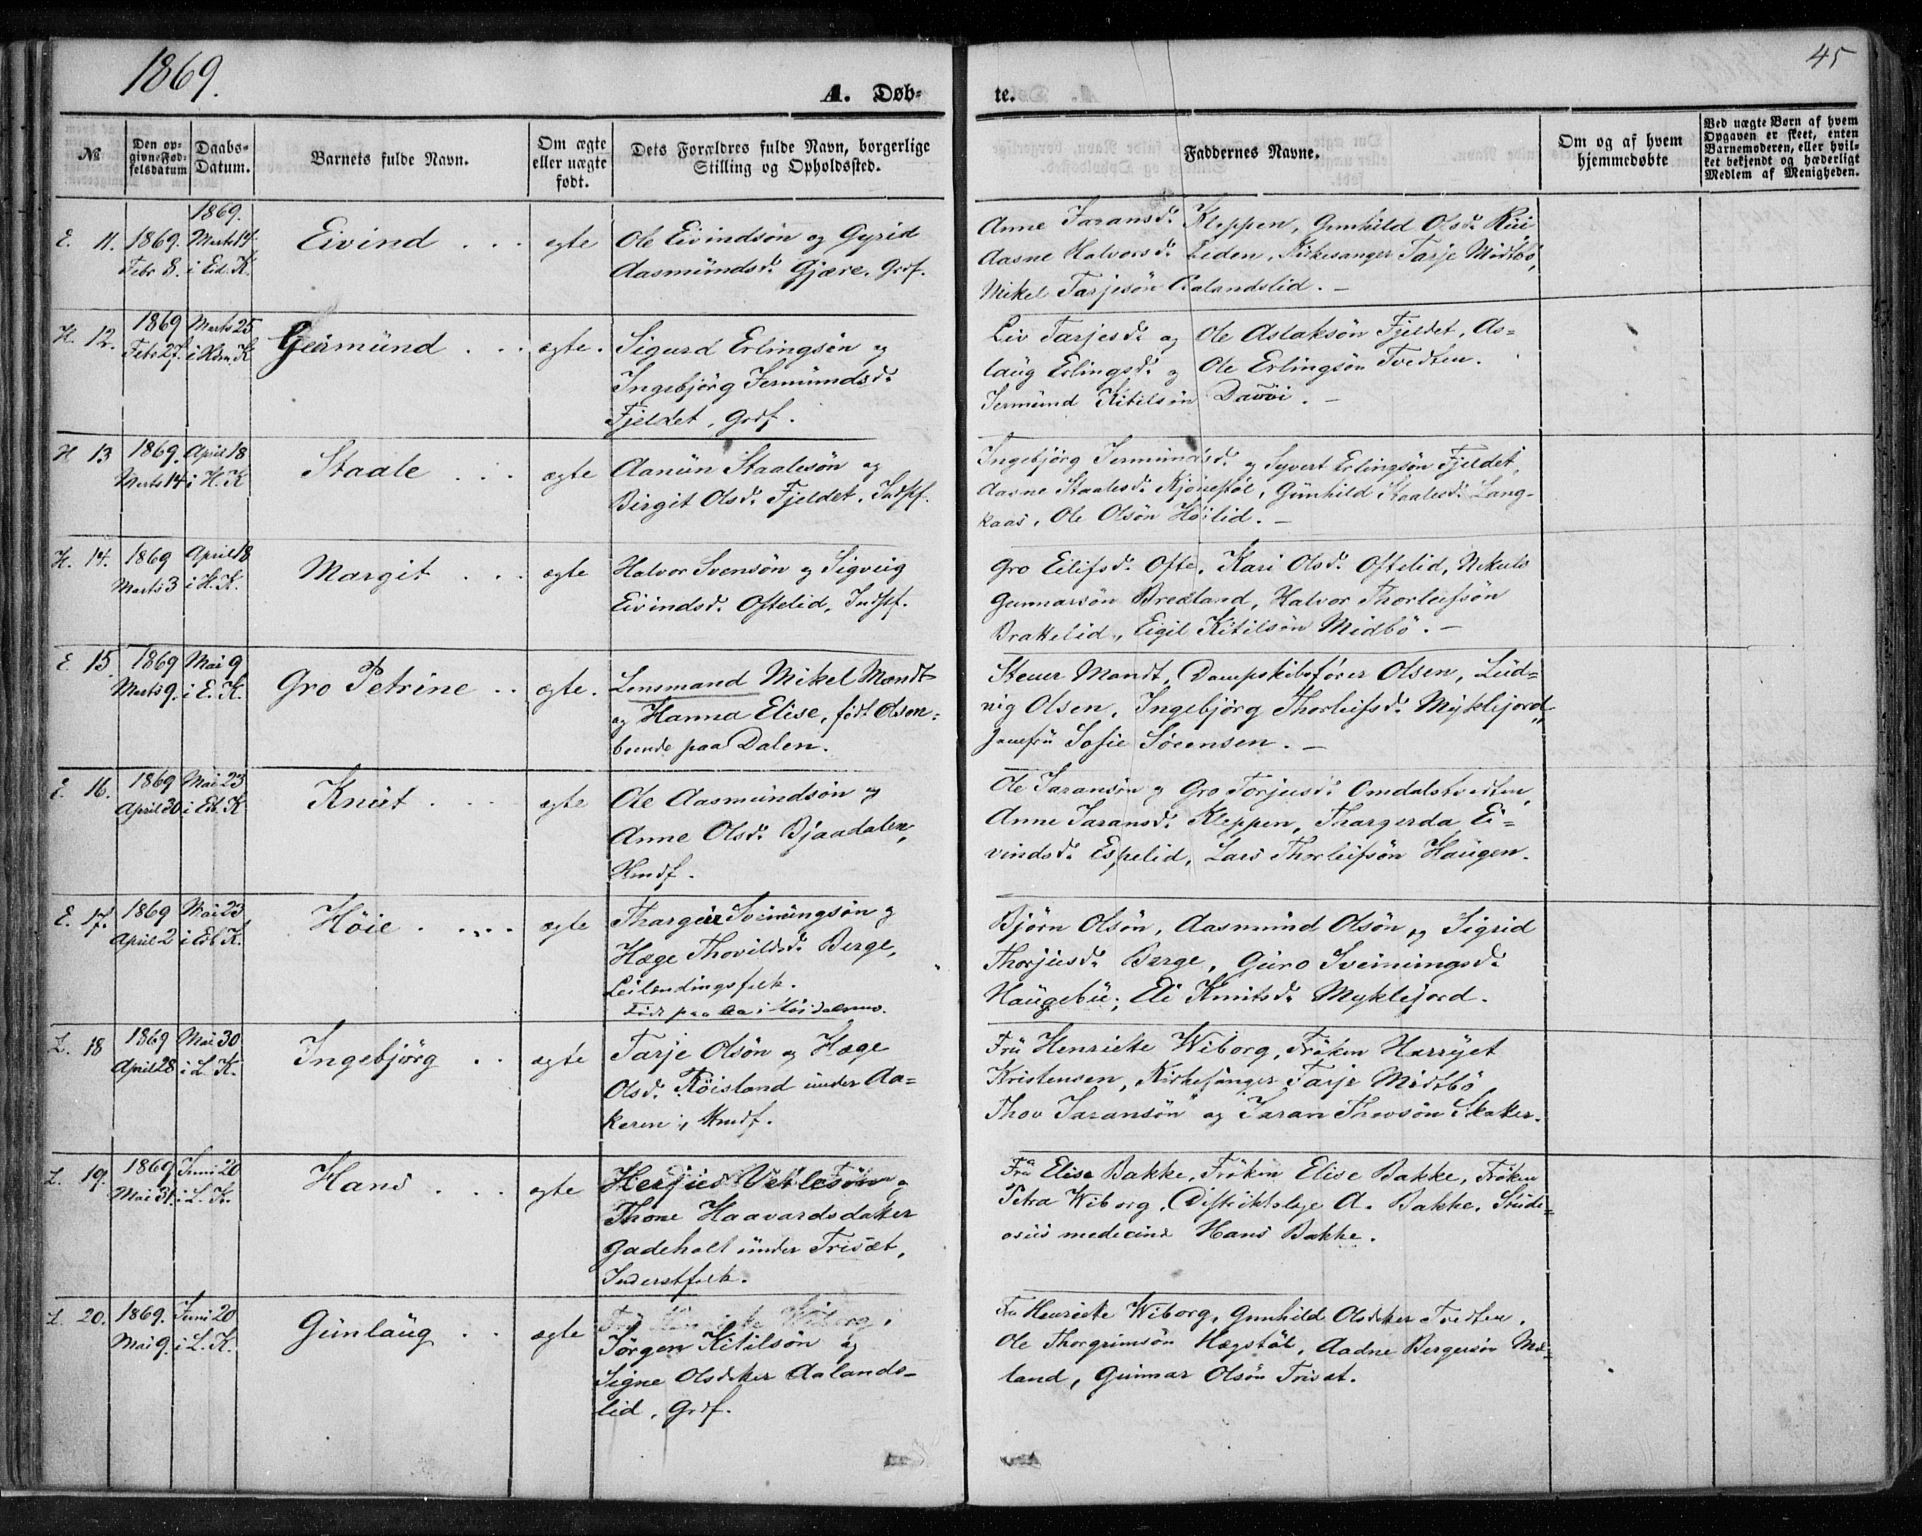 1869.
45
A. Døb-
te.
№
Den op-
givne Fød-
selsdatum
Daabs-
Datum.
Barnets fulde Navn.
Om ægte
eller uægte
født.
Dets Forældres fulde Navn, borgerlige
Stilling og Opholdssted.
Faddernes Navne.
Om og af hvem
hjemmedøbte
Ved uægte Børn af hvem
Opgaven er skeet, enten
Barnemoderen, eller hvil-
ket bekjendt og hæderligt
Medlem af Menigheden.
E. 11.
1869.
Febr 8.
1869.
Marts 14
i Eid. K.
Eivind
egte
Ole Eivindsön og Gyrid
Aasmundsd. Gjære, Grdf.
Anne Jaransd. Kleppen, Gunhild Olsd. Rui
Aasne Halvorsd. Liden, Kirkesanger Tarje Midtbö,
Mikel Tarjesön Aalandslid. —
H. 12.
1869
Febr 27.
Marts 25
i Hdm. K
Geirmund
ægte.
Sigurd Erlingsön og
Ingebjörg Jermundsd.
Fjeldet, Grdf.
Liv Tarjesd. og Ole Aslaksön Fjeldet, As-
laug Erlingsd. og Ole Erlingsön Tvedten.
Jermund Kitilsön —
H 13
1869.
Marts 14
April 18
i H. K
Staale
ægte
Aanün Staalesön og
Birgit Olsd. Fjeldet, Indstf.
Ingebjörg Jermundsd. og Syvert Erlingsön Fjeldet,
Aasne Staalesd. Kjönestöl, Gunhild Staalesd. Lang-
kaas, Ole Olsön Höilid. —
H. 14.
1869
Marts 3
April 18
i H. K.
Margit
ægte
Halvor Svensön og Sigveig
Eivindsd. Oftelid, Indstf.
Gro Eilifsd. Ofte, Kari Olsd. Oftelid, Nikuls
Gunnarsön Bredland, Halvor Thorleifsön
Brattelid, Eigil Kitilsön Midbö. —
E. 15
1869
Marts 9.
Mai 9
i E. K.
Gro Petrine
ægte.
Lensmand Mikel Mandt
og Hanna Elise, födt Olsen,
boende paa Dalen.
Stener Mandt, Dampskibsförer Olsen, Lud-
vig Olsen, Ingebjörg Thorleifsd. Myklejord,
Jomfru Sofie Sörensen. —
E. 16.
1869
April 30
Mai 23
i Eid. K
Knut
egte
Ole Aasmundsön og
Anne Olsd. Bjaadalen,
Hmdf.
Ole Jaransön og Gro Torjusd. Omdalstvedten,
Anne Jaransd. Kleppen, Thargerda Ei-
vindsd. Espelid, Lars Thorleifsön Haugen.
E. 17.
1869
April 2
Mai 23
i Eid K.
Höie
egte
Thargeir Sveinungsön og
Hæge Thovildsd. Berge,
Leilendingsfolk.
Födt paa Aa i Höidalsmo.
Björn Olsön, Aasmund Olsön og Sigrid
Thorjusd. Berge, Guro Sveinungsd.
Haugebü, Eli Knutsd. Myklejord.
L. 18
1869
April 28
Mai 30
i L. K.
Ingebjörg
ægte
Tarje Olsön og Hæge
Olsd. Röisland under Aa-
keren, Hmdf.
Fru Henriette Wiborg, Fröken Harryet
Kristensen, Kirkesanger Tarje Midtbö
Thov Jaransön og Jaran Thovsön Skaker.
L. 19.
1869
Mai 31.
Juni 20
i L. K.
Hans
egte
Herjus Vetlesön og
Thone Haavardsdatter
Gadeholt under Trisæt,
Inderstfolk.
Fru Elise Bakke, Fröken Elise Bakke, Fröken
Petra Wiborg, Distriktslæge A. Bakke, Studi-
osus medicinæ Hans Bakke.
L. 20.
1869.
Mai 9.
Juni 20
i L. K.
Gunlaug
ægte
Fru Henriette Wiborg,
Jörgen Kitilsön og
Signe Olsdatter Aalands-
lid, Grdf.
Fru Henriette Wiborg, Gunhild Olsdatter Tvedten,
Ole Thorgrimsön Hægstöl, Aadne Bergesön Mæ-
land, Gunnar Olsön Trisæt.